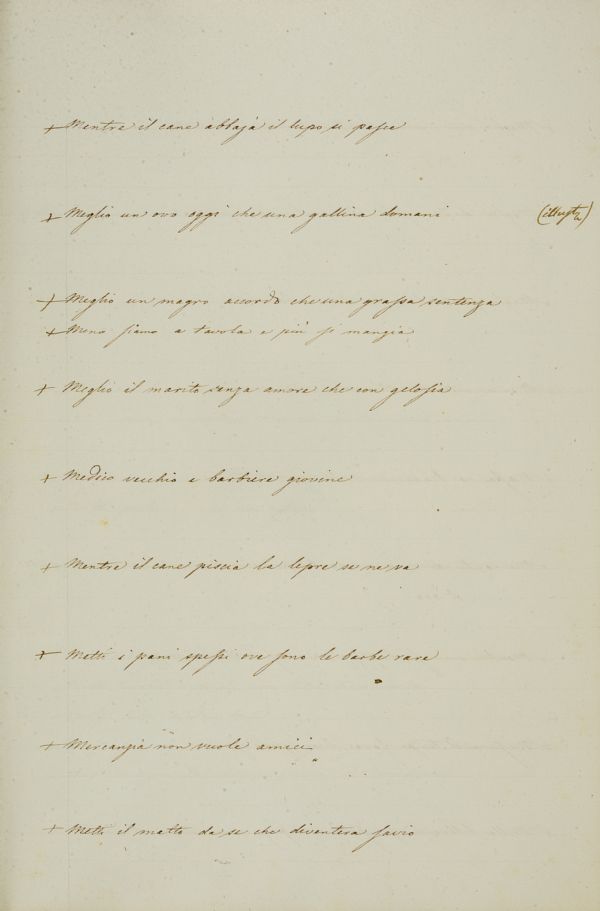 + Mentre il cane abbaja il lupo si pasce
+ Meglio un ovo oggi che una gallina domani
+ Meglio un magro accordo che una grassa sentenza
+ Meno siamo a tavola e più si mangia
+ Meglio il marito senza amore che con gelosia
+ Medico vecchio e barbiere giovine
+ Mentre il cane piscia la lepre se ne va
+ Metti i pani spessi ove sono le barbe rare
+ Mercanzia non vuole amici
+ Metti il matto da se che diventera savio